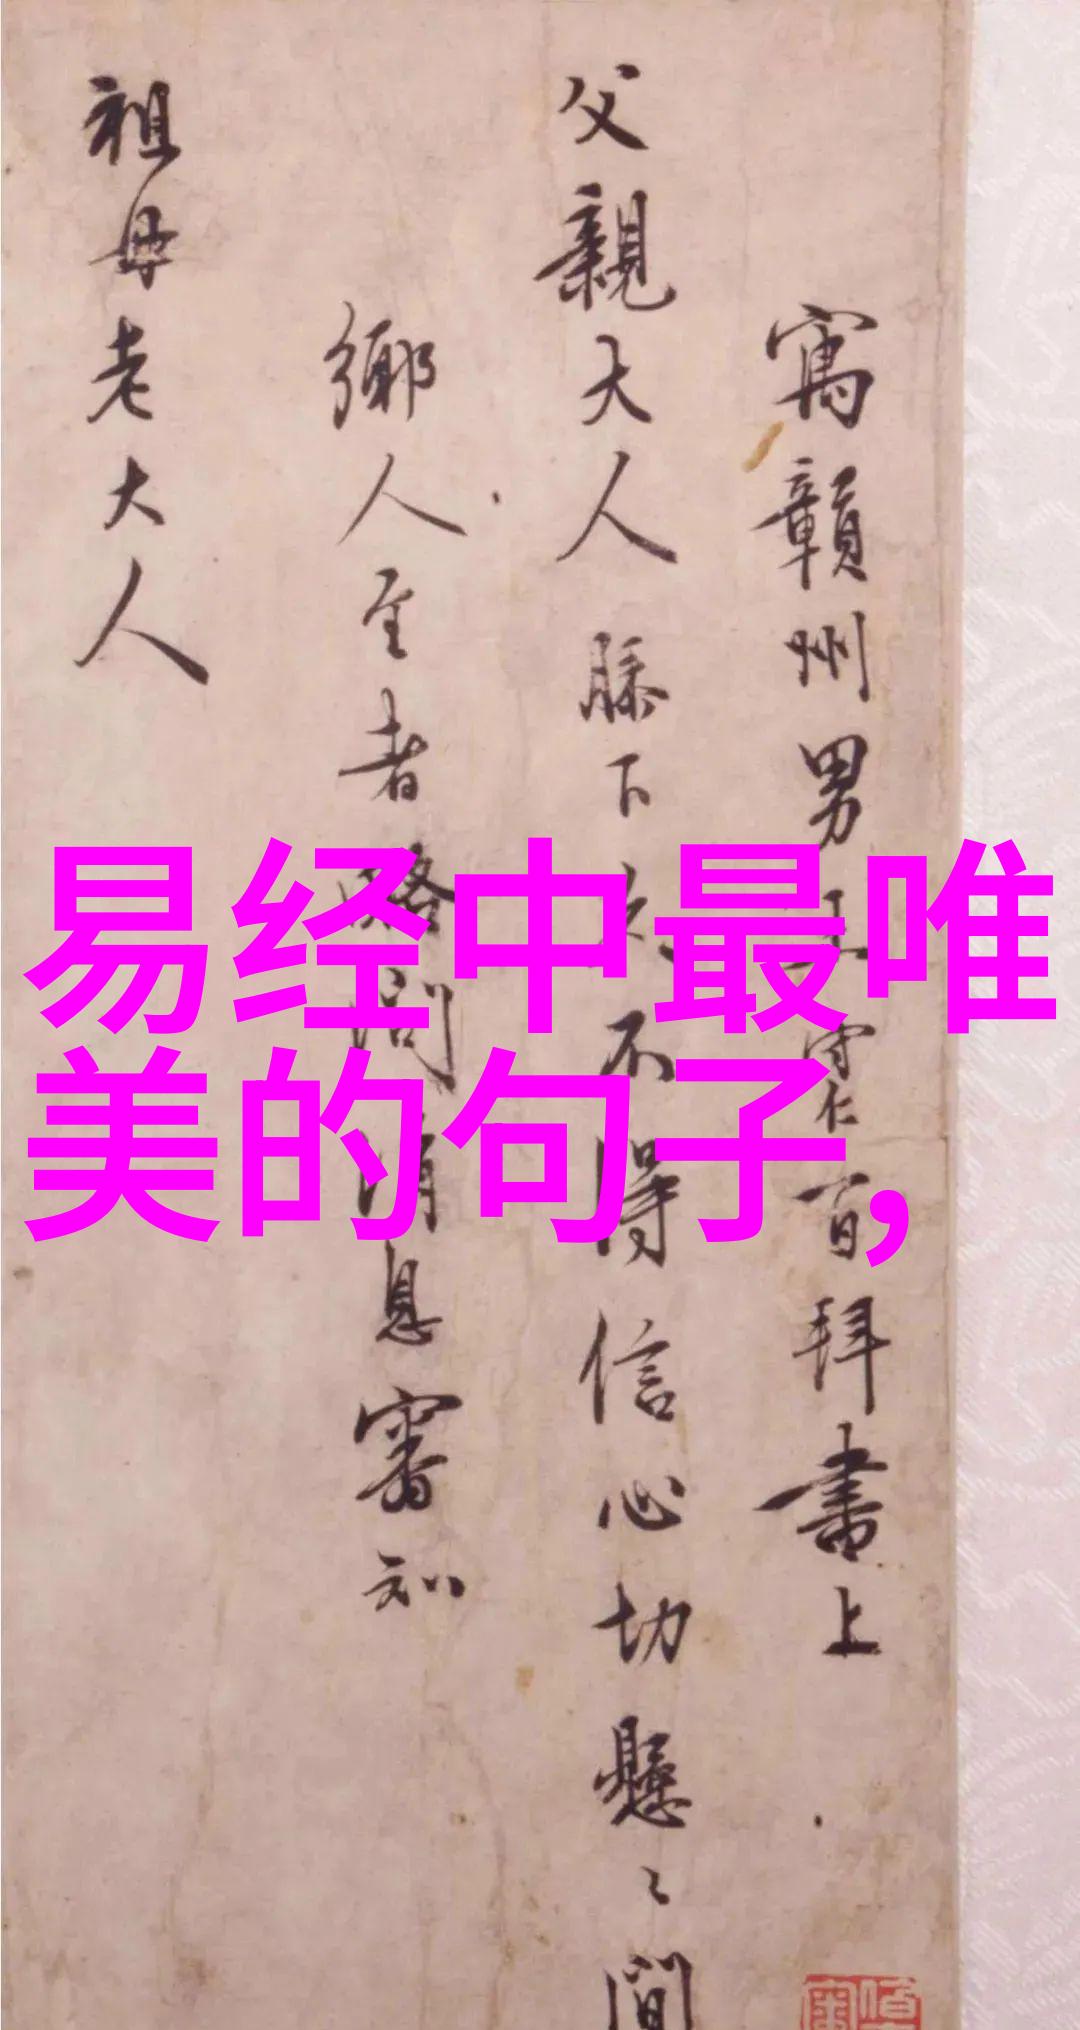 易经中最唯
美的句子,
寓贛州男王守仁百拜書上
父親大人膝下久不得信心切懸〻間
鄉人至者略問消息審知
祖母老大人